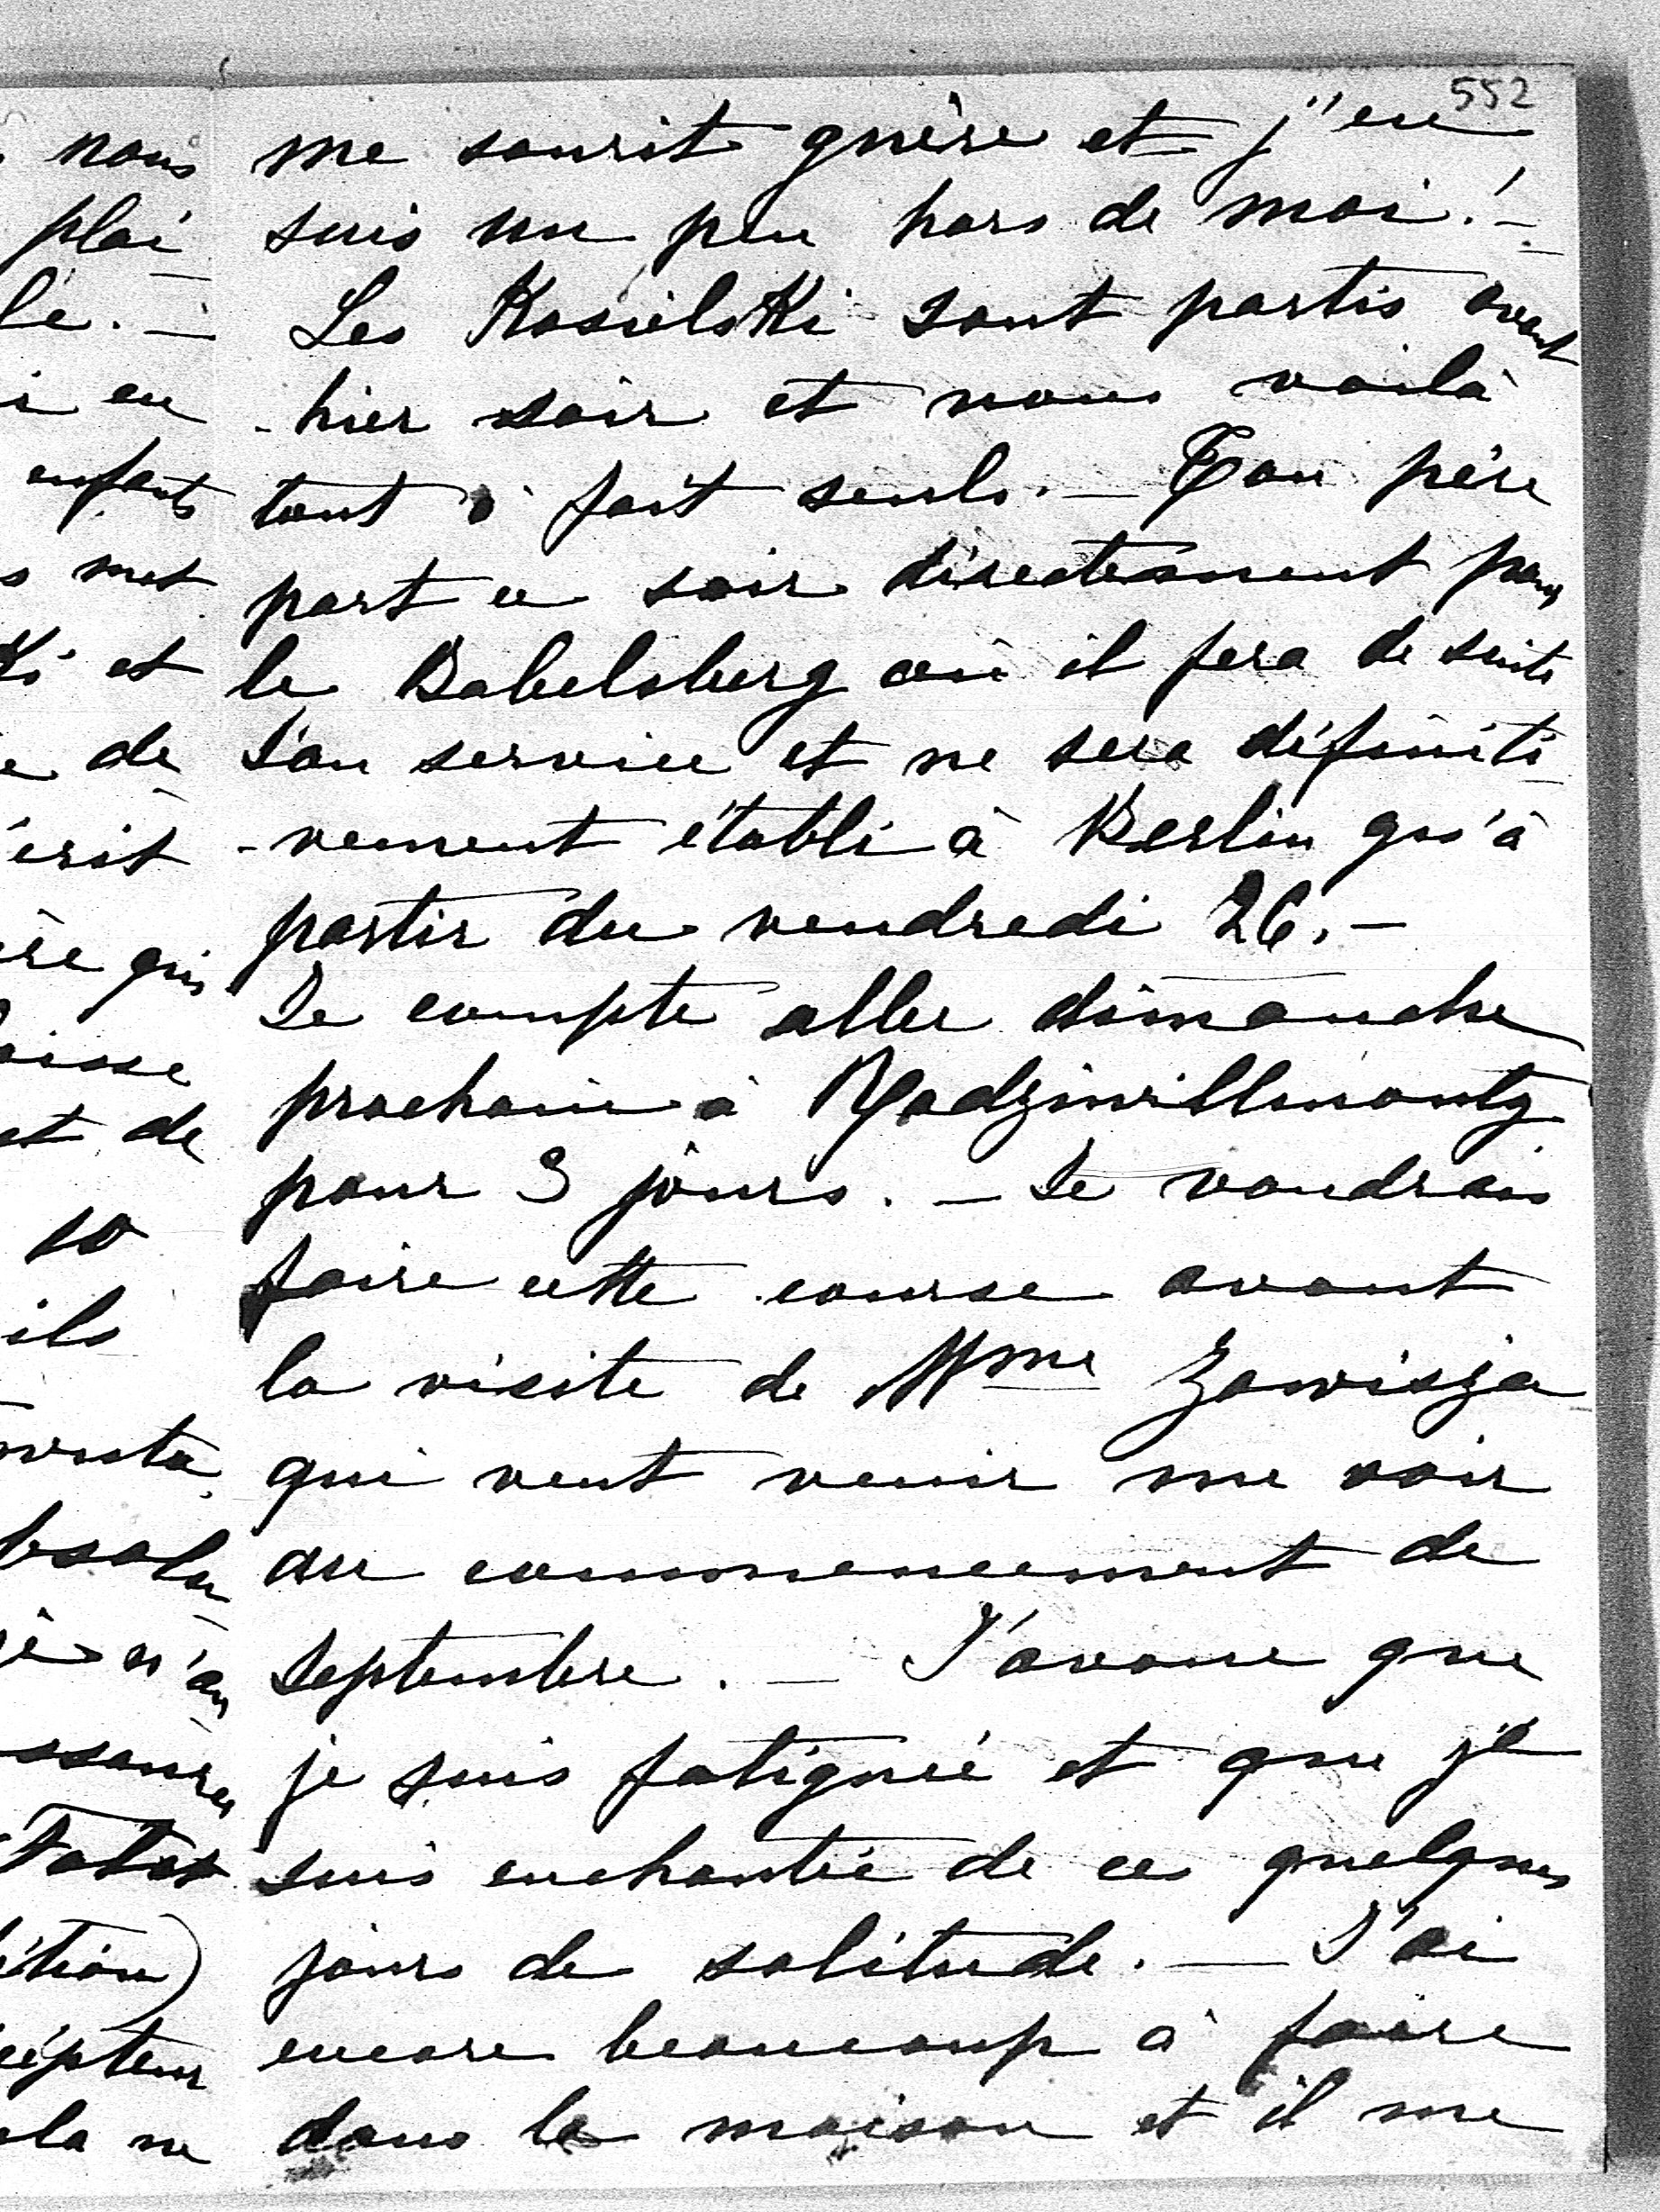 552
me sourit guère et j'en
suis un peu hors de moi! -
Les Kosielski sont partis avant
-hier soir et nous voilà
tout à fait seuls. - Ton père
part ce soir directement pour
le Babelsberg où il fera de suite
son service et ne sera définiti
-vement établi à Berlin qu'à
partir du vendredi 26. -
Je compte aller dimanche
prochain à Radziwillmontz
pour 3 jours. - Je voudrais
faire cette course avant
la visite de Mme Zawisza
qui veut venir me voir
au commencement de
septembre. - J'avoue que
je suis fatiguée et que je
suis enchantée de ces quelques
jours de solitude. - J'ai
encore beaucoup à faire
dans la maison et il me
nous
plai
lé. -
i en
enfants
s met
ki et
e de
érit
ère qui
aisse
et de
so
ils
bsolu
je n'au
ssances
ition)
cepteur
ela ne